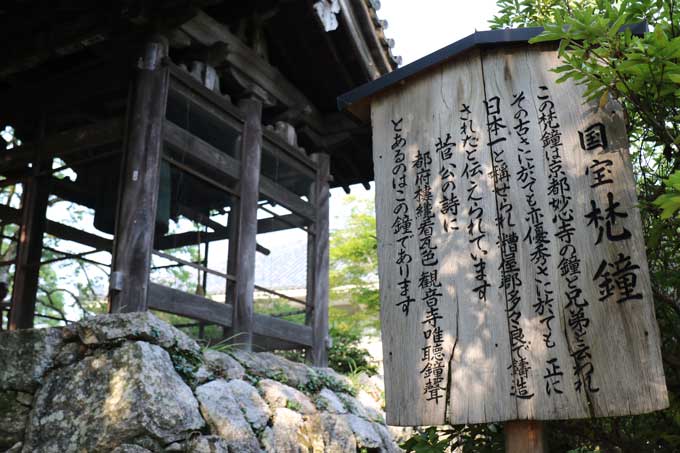 国宝 梵鐘
この梵鐘は京都妙心寺の鐘と兄弟と云われ
その古さに於ても亦優秀さに於ても 正に
日本一と稱せられ糟屋郡多々良で鋳造
されたと伝えられています
菅公の詩に
都府楼纔看瓦色 観音寺唯聴鐘聲
とあるのはこの鐘であります